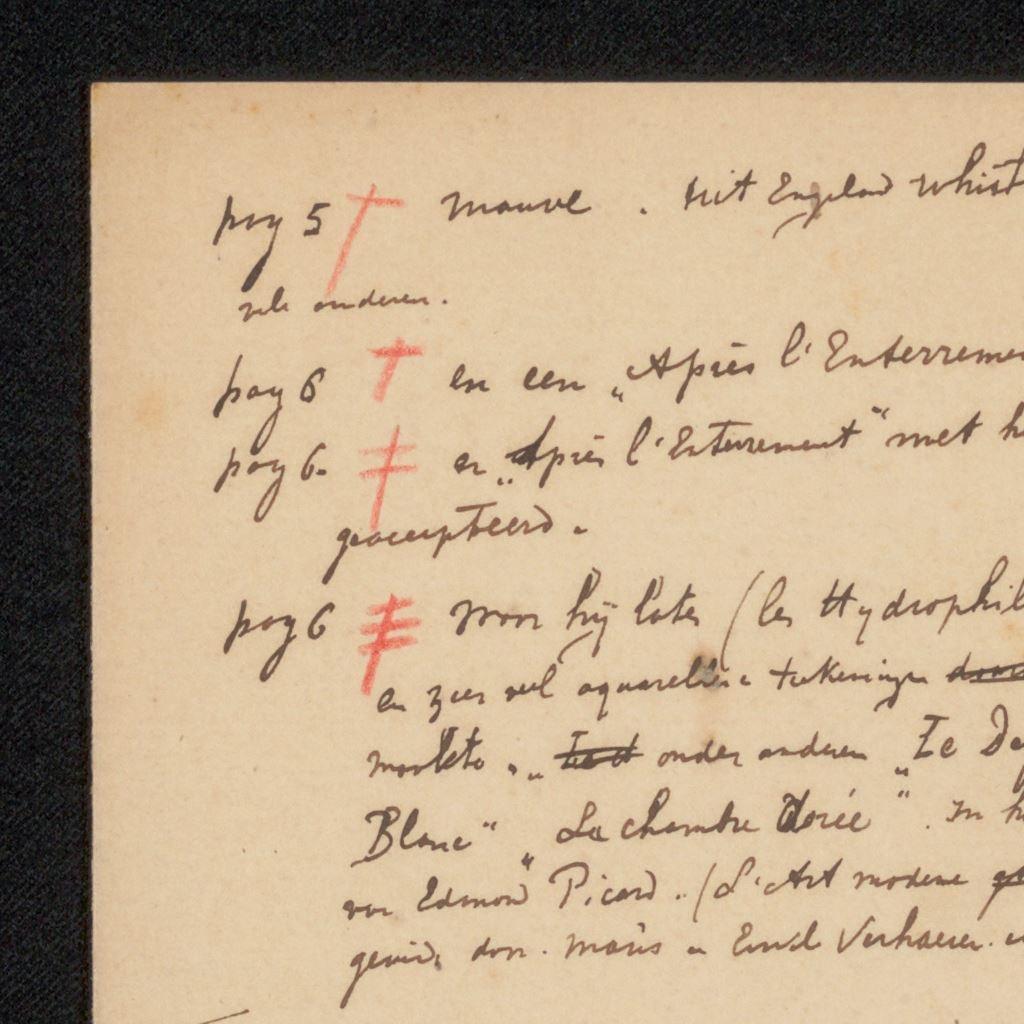 pag 5 † Mauve. Uit Engeland Whist
vele anderen.
pag 6 † en een „Après l'Enterreme
pag 6. ‡ en „Après l'Enterrement" met h
geaccepteerd.
pag 6 Voor hij later (les Hydrophil
en zeer veel aquarellen teekeningen
maakte. „ onder anderen „Le De
Blanc" „La chambre dorée". In h
van Edmond Picard. (L'Art moderne
door. Maus en Emile Verhaeren.